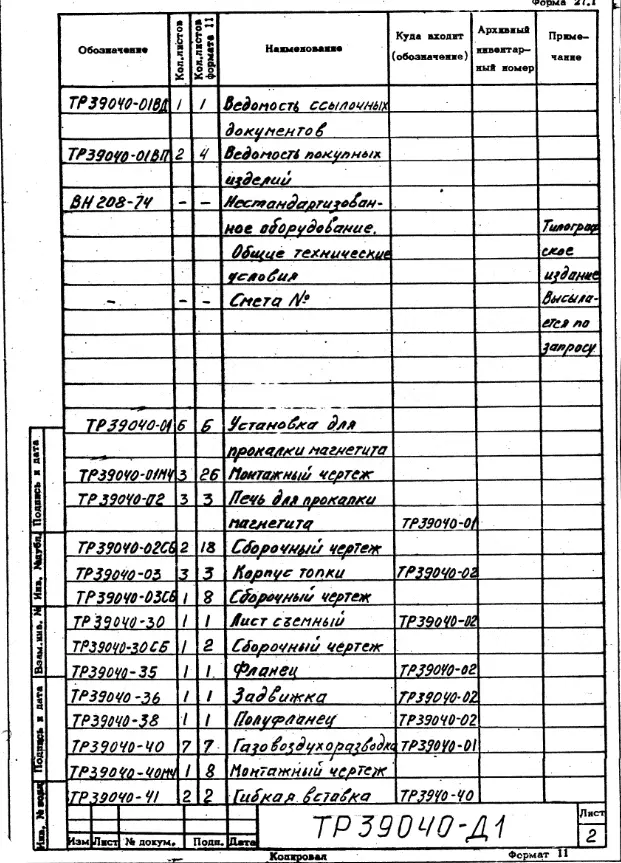 Форма 27.1
Обозначение Кол.листов Кол.листов формата 11 Наименование Куда входит (обозначение) Архивный инвентар-ный номер Приме-чание
ТР39040-01ВД 1 1 Ведомость ссылочных
документов
ТР39040-01ВП 2 4 Ведомость покупных
изделий
ВН 208-74 – – Нестандартизован-
ное оборудование. Типограф
Общие технические ское
условия издание
– – – Смета № Высыла-
ется по
запросу
ТР39040-01 6 6 Установка для
прокалки магнетита
ТР39040-01МЧ 3 26 Монтажный чертеж
ТР39040-02 3 3 Печь для прокалки
магнетита ТР39040-01
ТР39040-02СБ 2 18 Сборочный чертеж
ТР39040-03 3 3 Корпус топки ТР39040-02
ТР39040-03СБ 1 8 Сборочный чертеж
ТР39040-30 1 1 Лист съемный ТР39040-02
ТР39040-30СБ 1 2 Сборочный чертеж
ТР39040-35 1 1 Фланец ТР39040-02
ТР39040-36 1 1 Задвижка ТР39040-02
ТР39040-38 1 1 Полуфланец ТР39040-02
ТР39040-40 7 7 Газовоздухоразводка ТР39040-01
ТР39040-40МЧ 1 8 Монтажный чертеж
ТР39040-41 2 2 Гибкая вставка ТР3940-40
Подпись и дата
Инв. №дубл.
Взам.инв. №
Подпись и дата
Инв. № подл
Изм Лист № докум. Подп. Дата
ТР39040-Д1
Лист
2
Копировал Формат 11